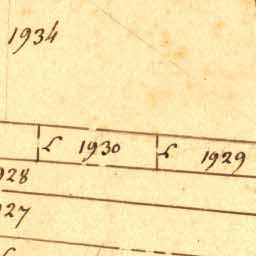 1934
1930
1929
928
927